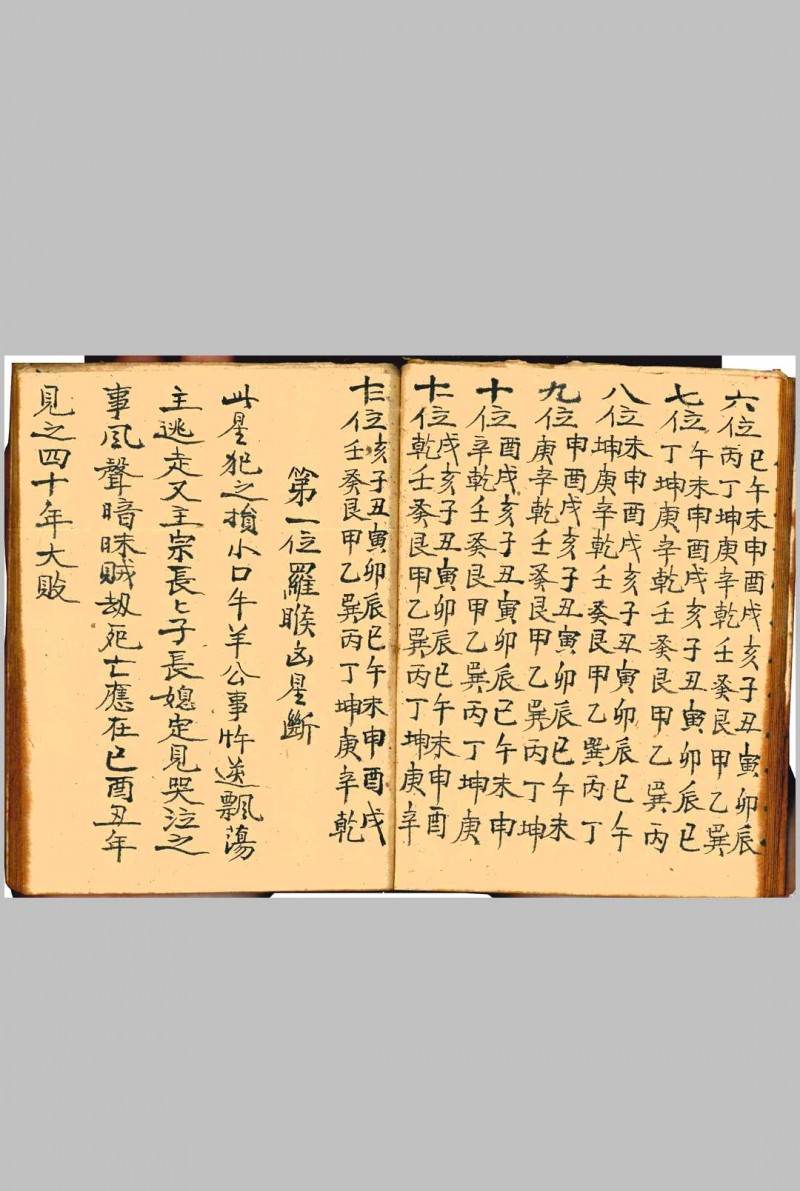 六位
巳午未申酉戌亥子丑寅卯辰
丙丁坤庚辛乾壬癸艮甲乙巽
七位
午未申酉戌亥子丑寅卯辰巳
丁坤庚辛乾壬癸艮甲乙巽丙
八位
未申酉戌亥子丑寅卯辰巳午
坤庚辛乾壬癸艮甲乙巽丙丁
九位
申酉戌亥子丑寅卯辰巳午未
庚辛乾壬癸艮甲乙巽丙丁坤
十位
酉戌亥子丑寅卯辰巳午未申
辛乾壬癸艮甲乙巽丙丁坤庚
十一位
戌亥子丑寅卯辰巳午未申酉
乾壬癸艮甲乙巽丙丁坤庚辛
十二位
亥子丑寅卯辰巳午未申酉戌
壬癸艮甲乙巽丙丁坤庚辛乾
第一位羅睺凶星斷
此星犯之損小口牛羊公事忤逆飄蕩
主逃走又主宗長々子長媳定見哭泣之
事風聲暗昧賊劫死亡應在巳酉丑年
見之四十年大敗